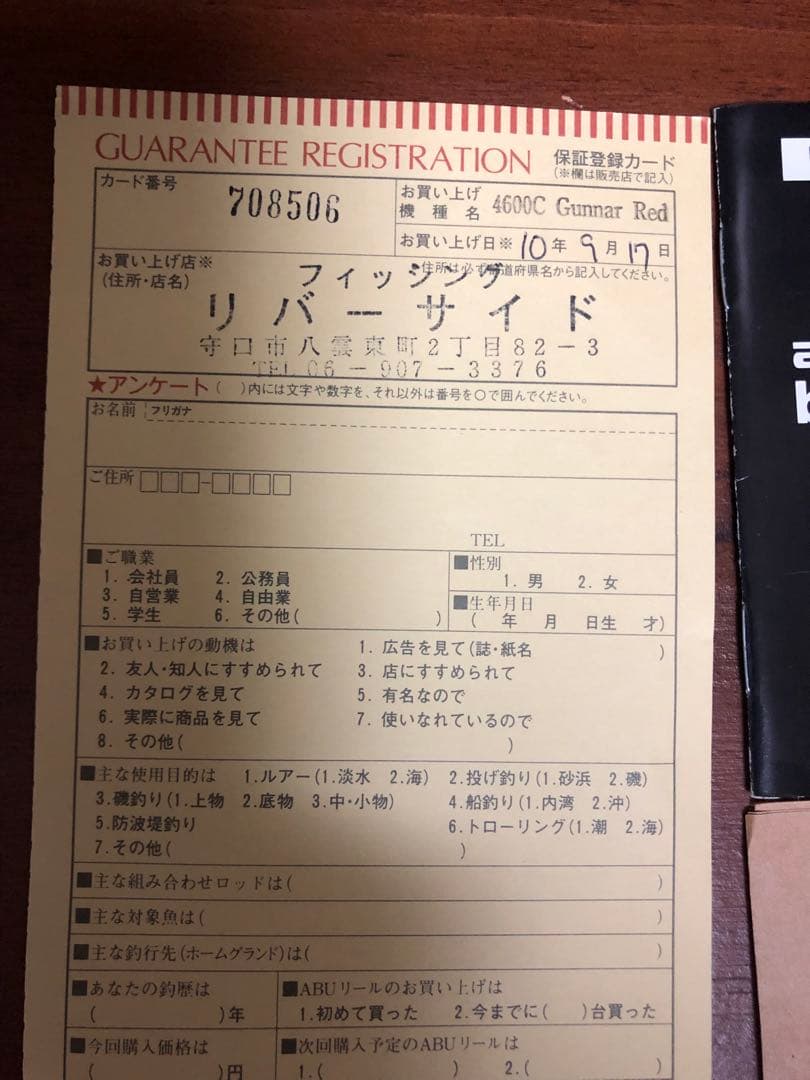 GUARANTEE REGISTRATION 保証登録カード
(※欄は販売店で記入)
カード番号 708506
お買い上げ機種名 4600C Gunnar Red
お買い上げ日※ 10年9月17日
お買い上げ店※
(住所・店名)
住所は必ず都道府県名から記入してください。
フィッシング
リバーサイド
守口市八雲東町2丁目82-3
TEL 06-907-3376
★アンケート ( )内には文字や数字を、それ以外は番号を○で囲んでください。
お名前 フリガナ
ご住所 □□□-□□□□
TEL
■ご職業
1. 会社員 2. 公務員
3. 自営業 4. 自由業
5. 学生 6. その他( )
■性別
1. 男 2. 女
■生年月日
( 年 月 日生 才)
■お買い上げの動機は 1. 広告を見て(誌・紙名 )
2. 友人・知人にすすめられて 3. 店にすすめられて
4. カタログを見て 5. 有名なので
6. 実際に商品を見て 7. 使いなれているので
8. その他( )
■主な使用目的は 1.ルアー(1.淡水 2.海) 2.投げ釣り(1.砂浜 2.磯)
3.磯釣り(1.上物 2.底物 3.中・小物) 4.船釣り(1.内湾 2.沖)
5.防波堤釣り 6.トローリング(1.潮 2.海)
7.その他( )
■主な組み合わせロッドは( )
■主な対象魚は( )
■主な釣行先(ホームグランド)は( )
■あなたの釣歴は
( )年
■ABUリールのお買い上げは
1.初めて買った 2.今までに( )台買った
■今回購入価格は
( )円
■次回購入予定のABUリールは
1.( ) 2.( )